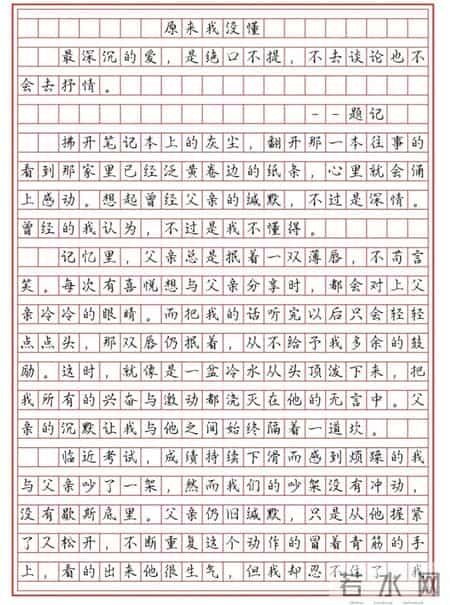 原来我没懂
最深沉的爱，是绝口不提，不去谈论也不
会去抒情。
——题记
拂开笔记本上的灰尘，翻开那一本往事的
看到那家里已经泛黄卷边的纸条，心里就会涌
上感动。想起曾经父亲的缄默，不过是深情。
曾经的我认为，不过是我不懂得。
记忆里，父亲总是抿着一双薄唇，不苟言
笑。每次有喜悦想与父亲分享时，都会对上父
亲冷冷的眼睛。而把我的话听完以后只会轻轻
点点头，那双唇仍抿着，从不给予我多余的鼓
励。这时，就像是一盆冷水从头顶泼下来，把
我所有的兴奋与激动都浇灭在他的无言中。父
亲的沉默让我与他之间始终隔着一道坎。
临近考试，成绩持续下滑而感到烦躁的我
与父亲吵了一架，然而我们的吵架没有冲动，
没有歇斯底里。父亲仍旧缄默，只是从他握紧
了又松开，不断重复这个动作的冒着青筋的手
上，看的出来他很生气，但我却忍不住了，我
若水网